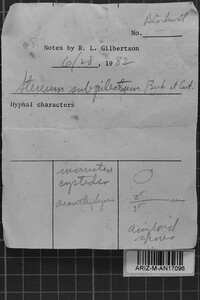 No.
Notes by R. L. Gilbertson
6/28, 1982
Stereum subpileatum Berk et Curt.
Hyphal characters
encrusted
cystidia
acanthophyses
amyloid
spores
ARIZ-M-AN17096